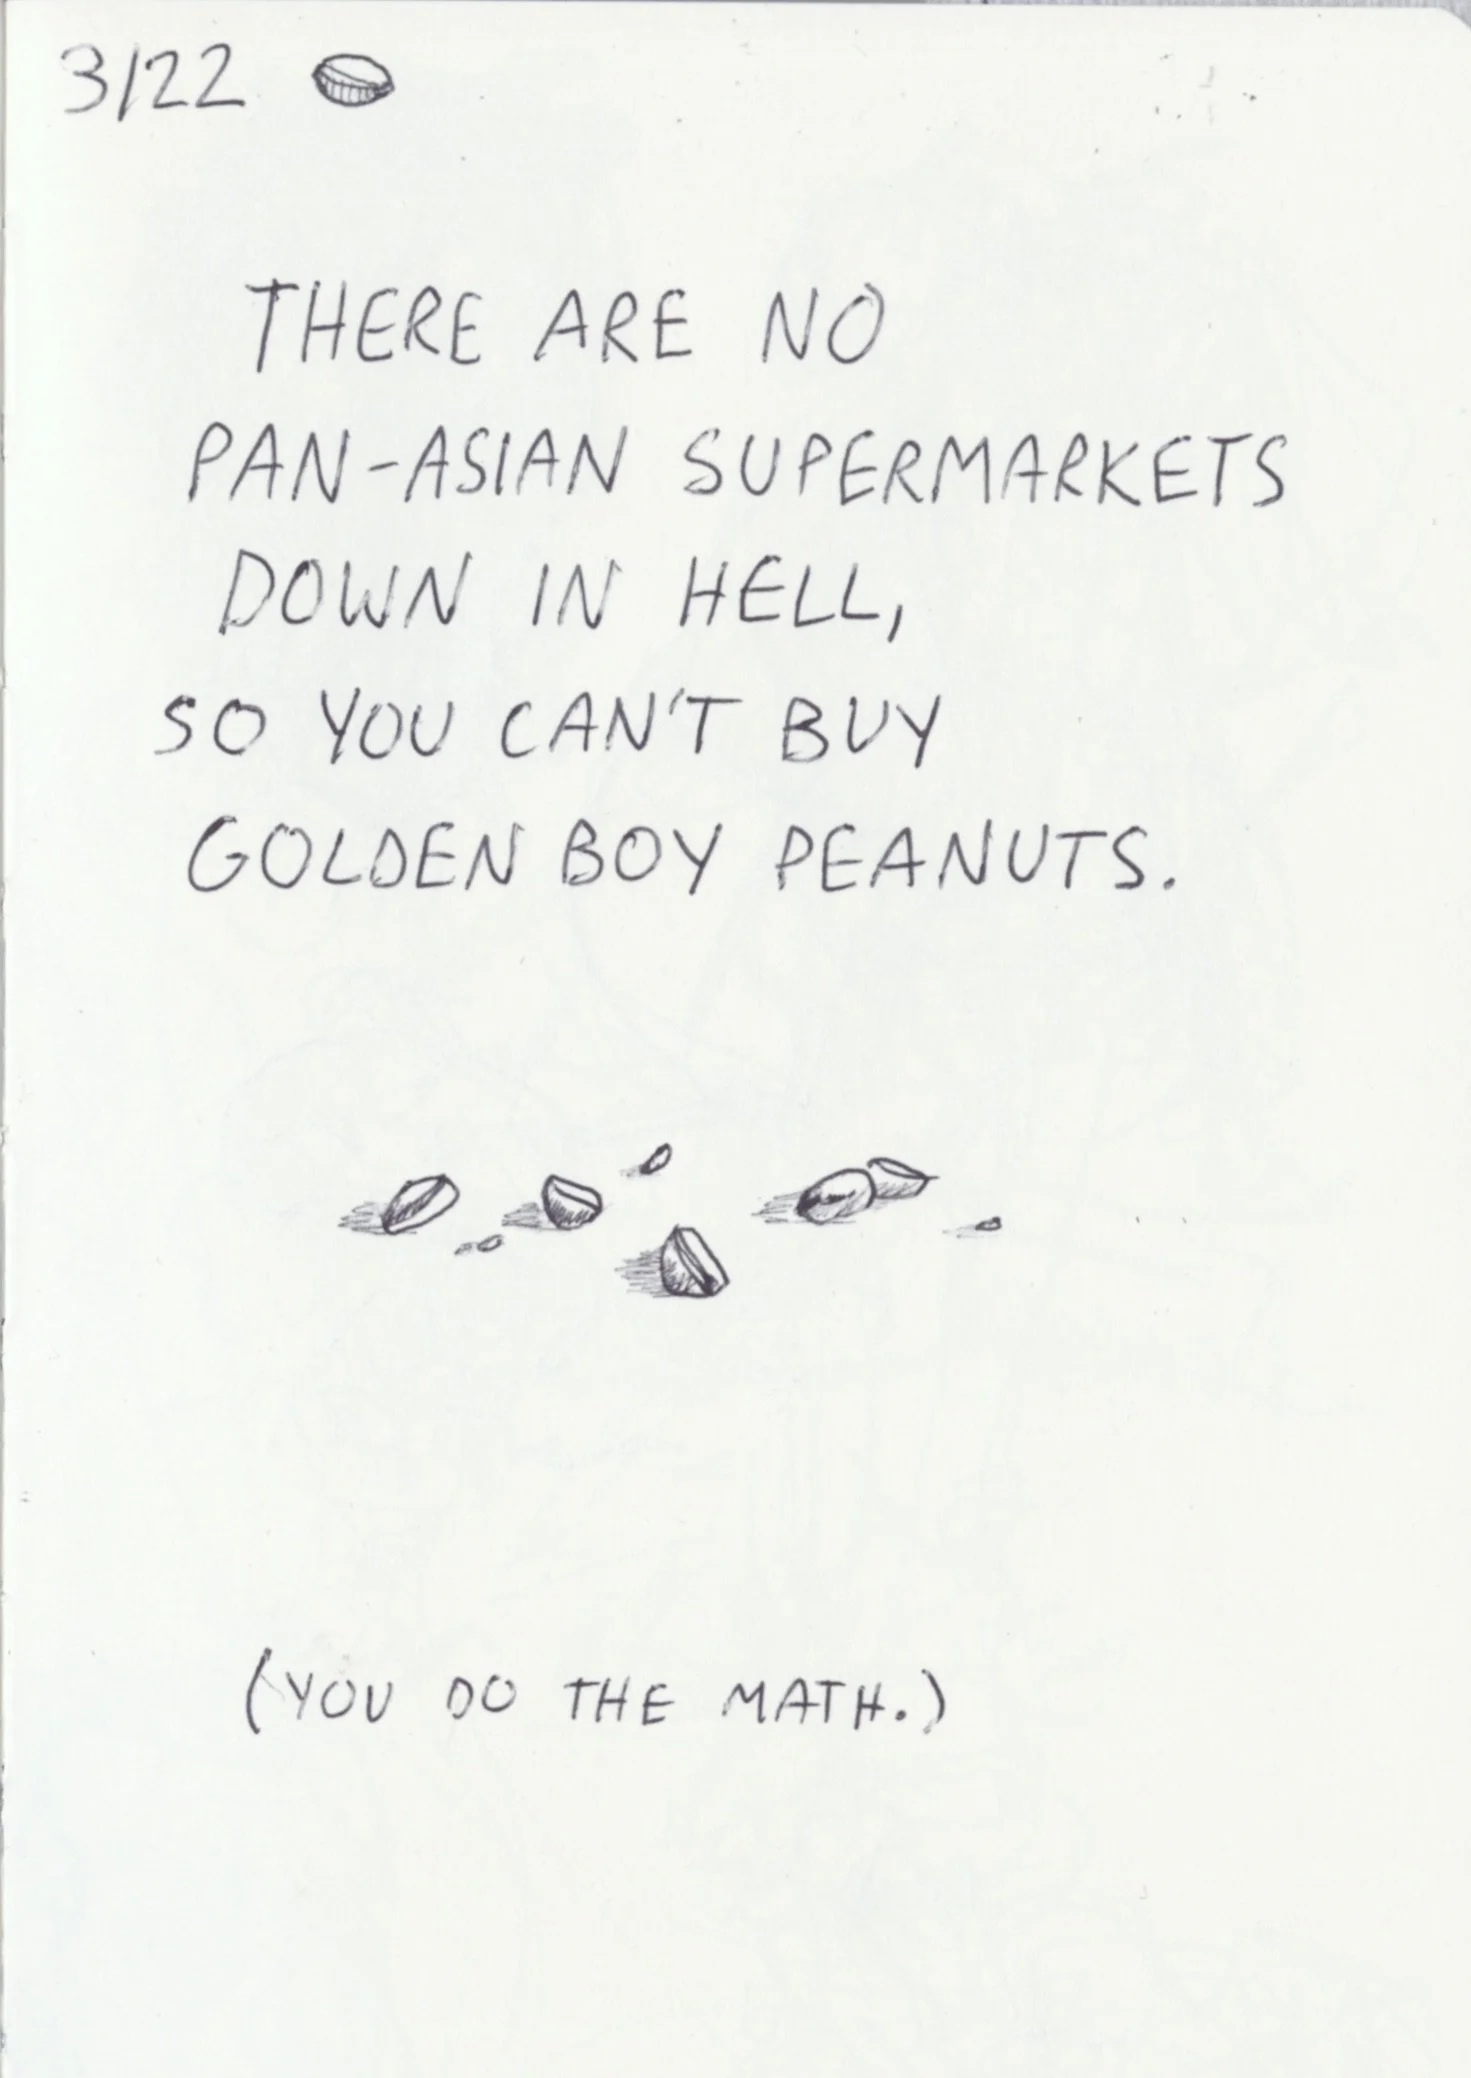 3/22
THERE ARE NO
PAN-ASIAN SUPERMARKETS
DOWN IN HELL,
SO YOU CAN'T BUY
GOLDEN BOY PEANUTS.
(YOU DO THE MATH.)